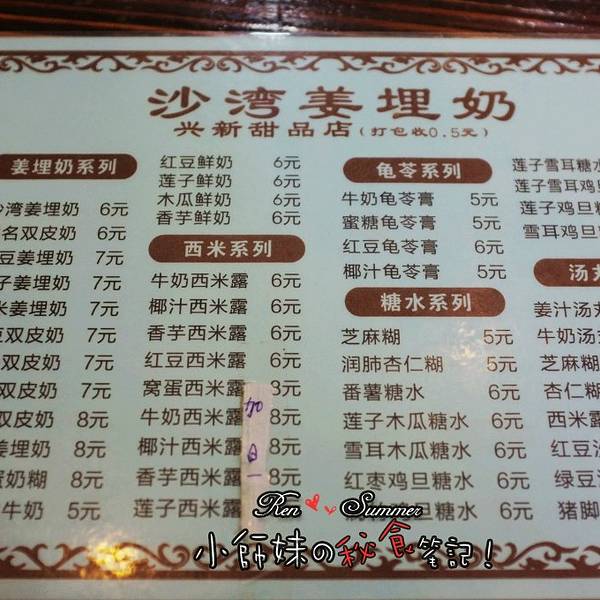 沙湾姜埋奶
兴新甜品店(打包收0.5元)
姜埋奶系列
沙湾姜埋奶 6元
名双皮奶 6元
豆姜埋奶 7元
子姜埋奶 7元
米姜埋奶 7元
豆双皮奶 7元
双皮奶 7元
双皮奶 7元
双皮奶 8元
姜埋奶 8元
蛋奶糊 8元
牛奶 5元
红豆鲜奶 6元
莲子鲜奶 6元
木瓜鲜奶 6元
香芋鲜奶 6元
西米系列
牛奶西米露 6元
椰汁西米露 6元
香芋西米露 6元
红豆西米露 6元
窝蛋西米露 8元
牛奶西米露 8元
椰汁西米露 8元
香芋西米露 8元
莲子西米露
加
龟苓系列
牛奶龟苓膏 5元
蜜糖龟苓膏 5元
红豆龟苓膏 6元
椰汁龟苓膏 5元
糖水系列
芝麻糊 5元
润肺杏仁糊 5元
番薯糖水 6元
莲子木瓜糖水 6元
雪耳木瓜糖水 6元
红枣鸡旦糖水 6元
鸡旦糖水 6元
莲子雪耳糖水
莲子雪耳鸡旦
莲子鸡旦糖
雪耳鸡旦糖
汤丸
姜汁汤丸
牛奶汤丸
芝麻糊
杏仁糊
西米露
红豆沙
绿豆沙
猪脚
Ren Summer
小師妹の秘食笔記!